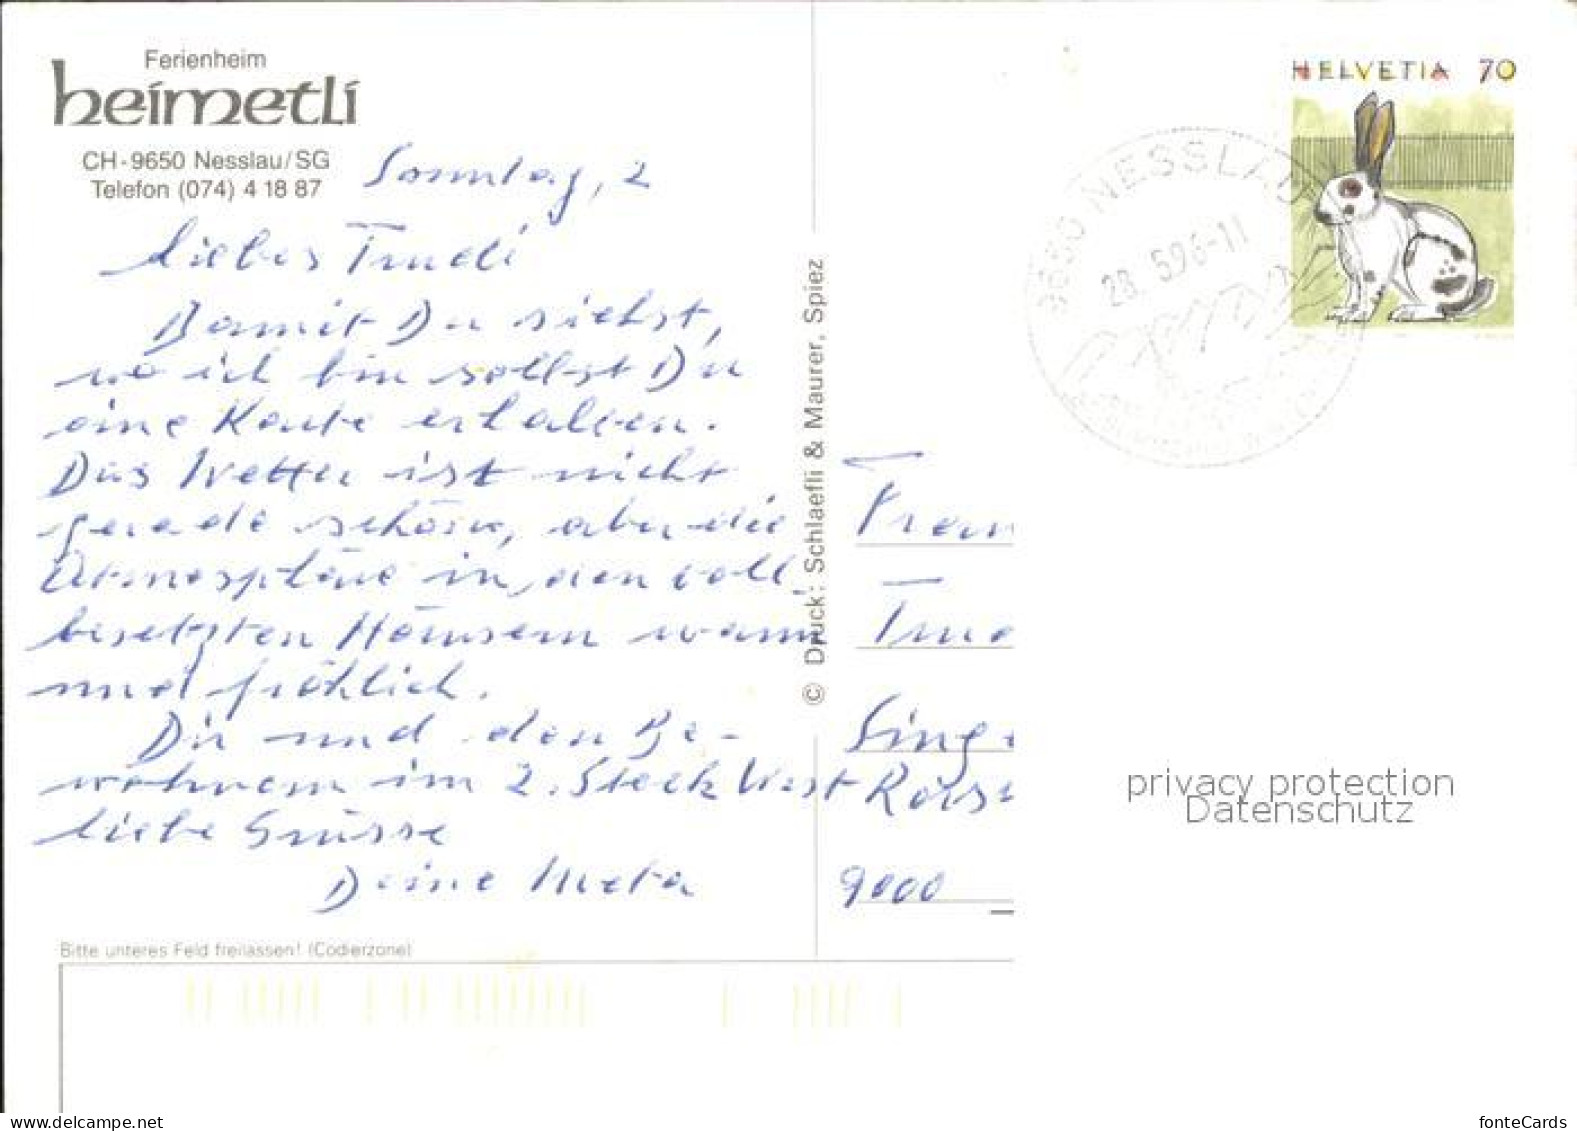 Ferienheim
heimetli
CH-9650 Nesslau/SG
Telefon (074) 4 18 87
Sonntag, 2
Liebes Trudi
Damit Du siehst,
wo ich bin sollst Du
eine Karte erhalten.
Das Wetter ist nicht
gerade schön, aber die
Atmosphäre in den voll
besetzten Häusern warm
und fröhlich.
Dir und den Be-
wohnern im 2. Stock West
liebe Grüsse
Deine Meta
Bitte unteres Feld freilassen! (Codierzone)
© Druck: Schlaefli & Maurer, Spiez
HELVETIA 70
9650 NESSLAU
28. 5.96-11
Frau
Trud
Sing
9000
privacy protection
Datenschutz
www.delcampe.net
fonteCards